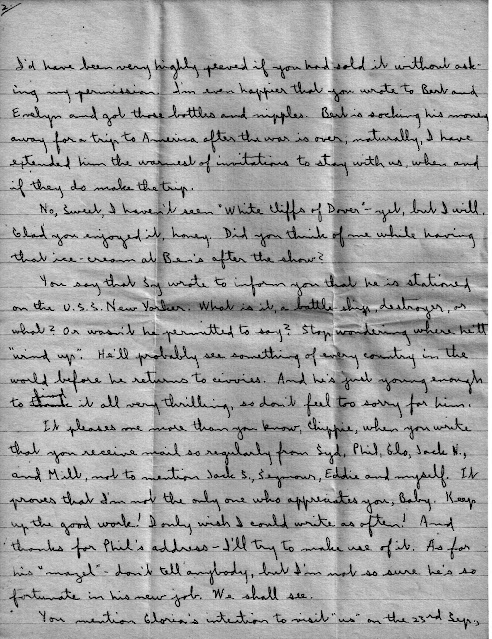 2.
I'd have been very highly peeved if you had sold it without ask-
ing my permission. I'm even happier that you wrote to Bert and
Evelyn and got those bottles and nipples. Bert is socking his money
away for a trip to America after the war is over, naturally, I have
extended him the warmest of invitations to stay with us, when and
if they do make the trip.
No, Sweet, I haven't seen "White Cliffs of Dover" - yet, but I will.
Glad you enjoyed it, honey. Did you think of me while having
that ice-cream at Ben's after the show?
You say that Sy wrote to inform you that he is stationed
on the U.S.S. New Yorker. What is it, a battle-ship, destroyer, or
what? Or wasn't he permitted to say? Stop wondering where he'll
"wind up". He'll probably see something of every country in the
world before he returns to civvies. And he's just young enough
to find it all very thrilling, so don't feel too sorry for him.
It pleases me more than you know, Chippie, when you write
that you receive mail so regularly from Syd, Phil, Glo, Jack N.,
and Milt, not to mention Jack S., Seymour, Eddie and myself. It
proves that I'm not the only one who appreciates you, Baby. Keep
up the good work! I only wish I could write as often! And
thanks for Phil's address - I'll try to make use of it. As for
his "mazel" - don't tell anybody, but I'm not so sure he's so
fortunate in his new job. We shall see.
You mention Gloria's intention to visit "us" on the 23rd Sep.,